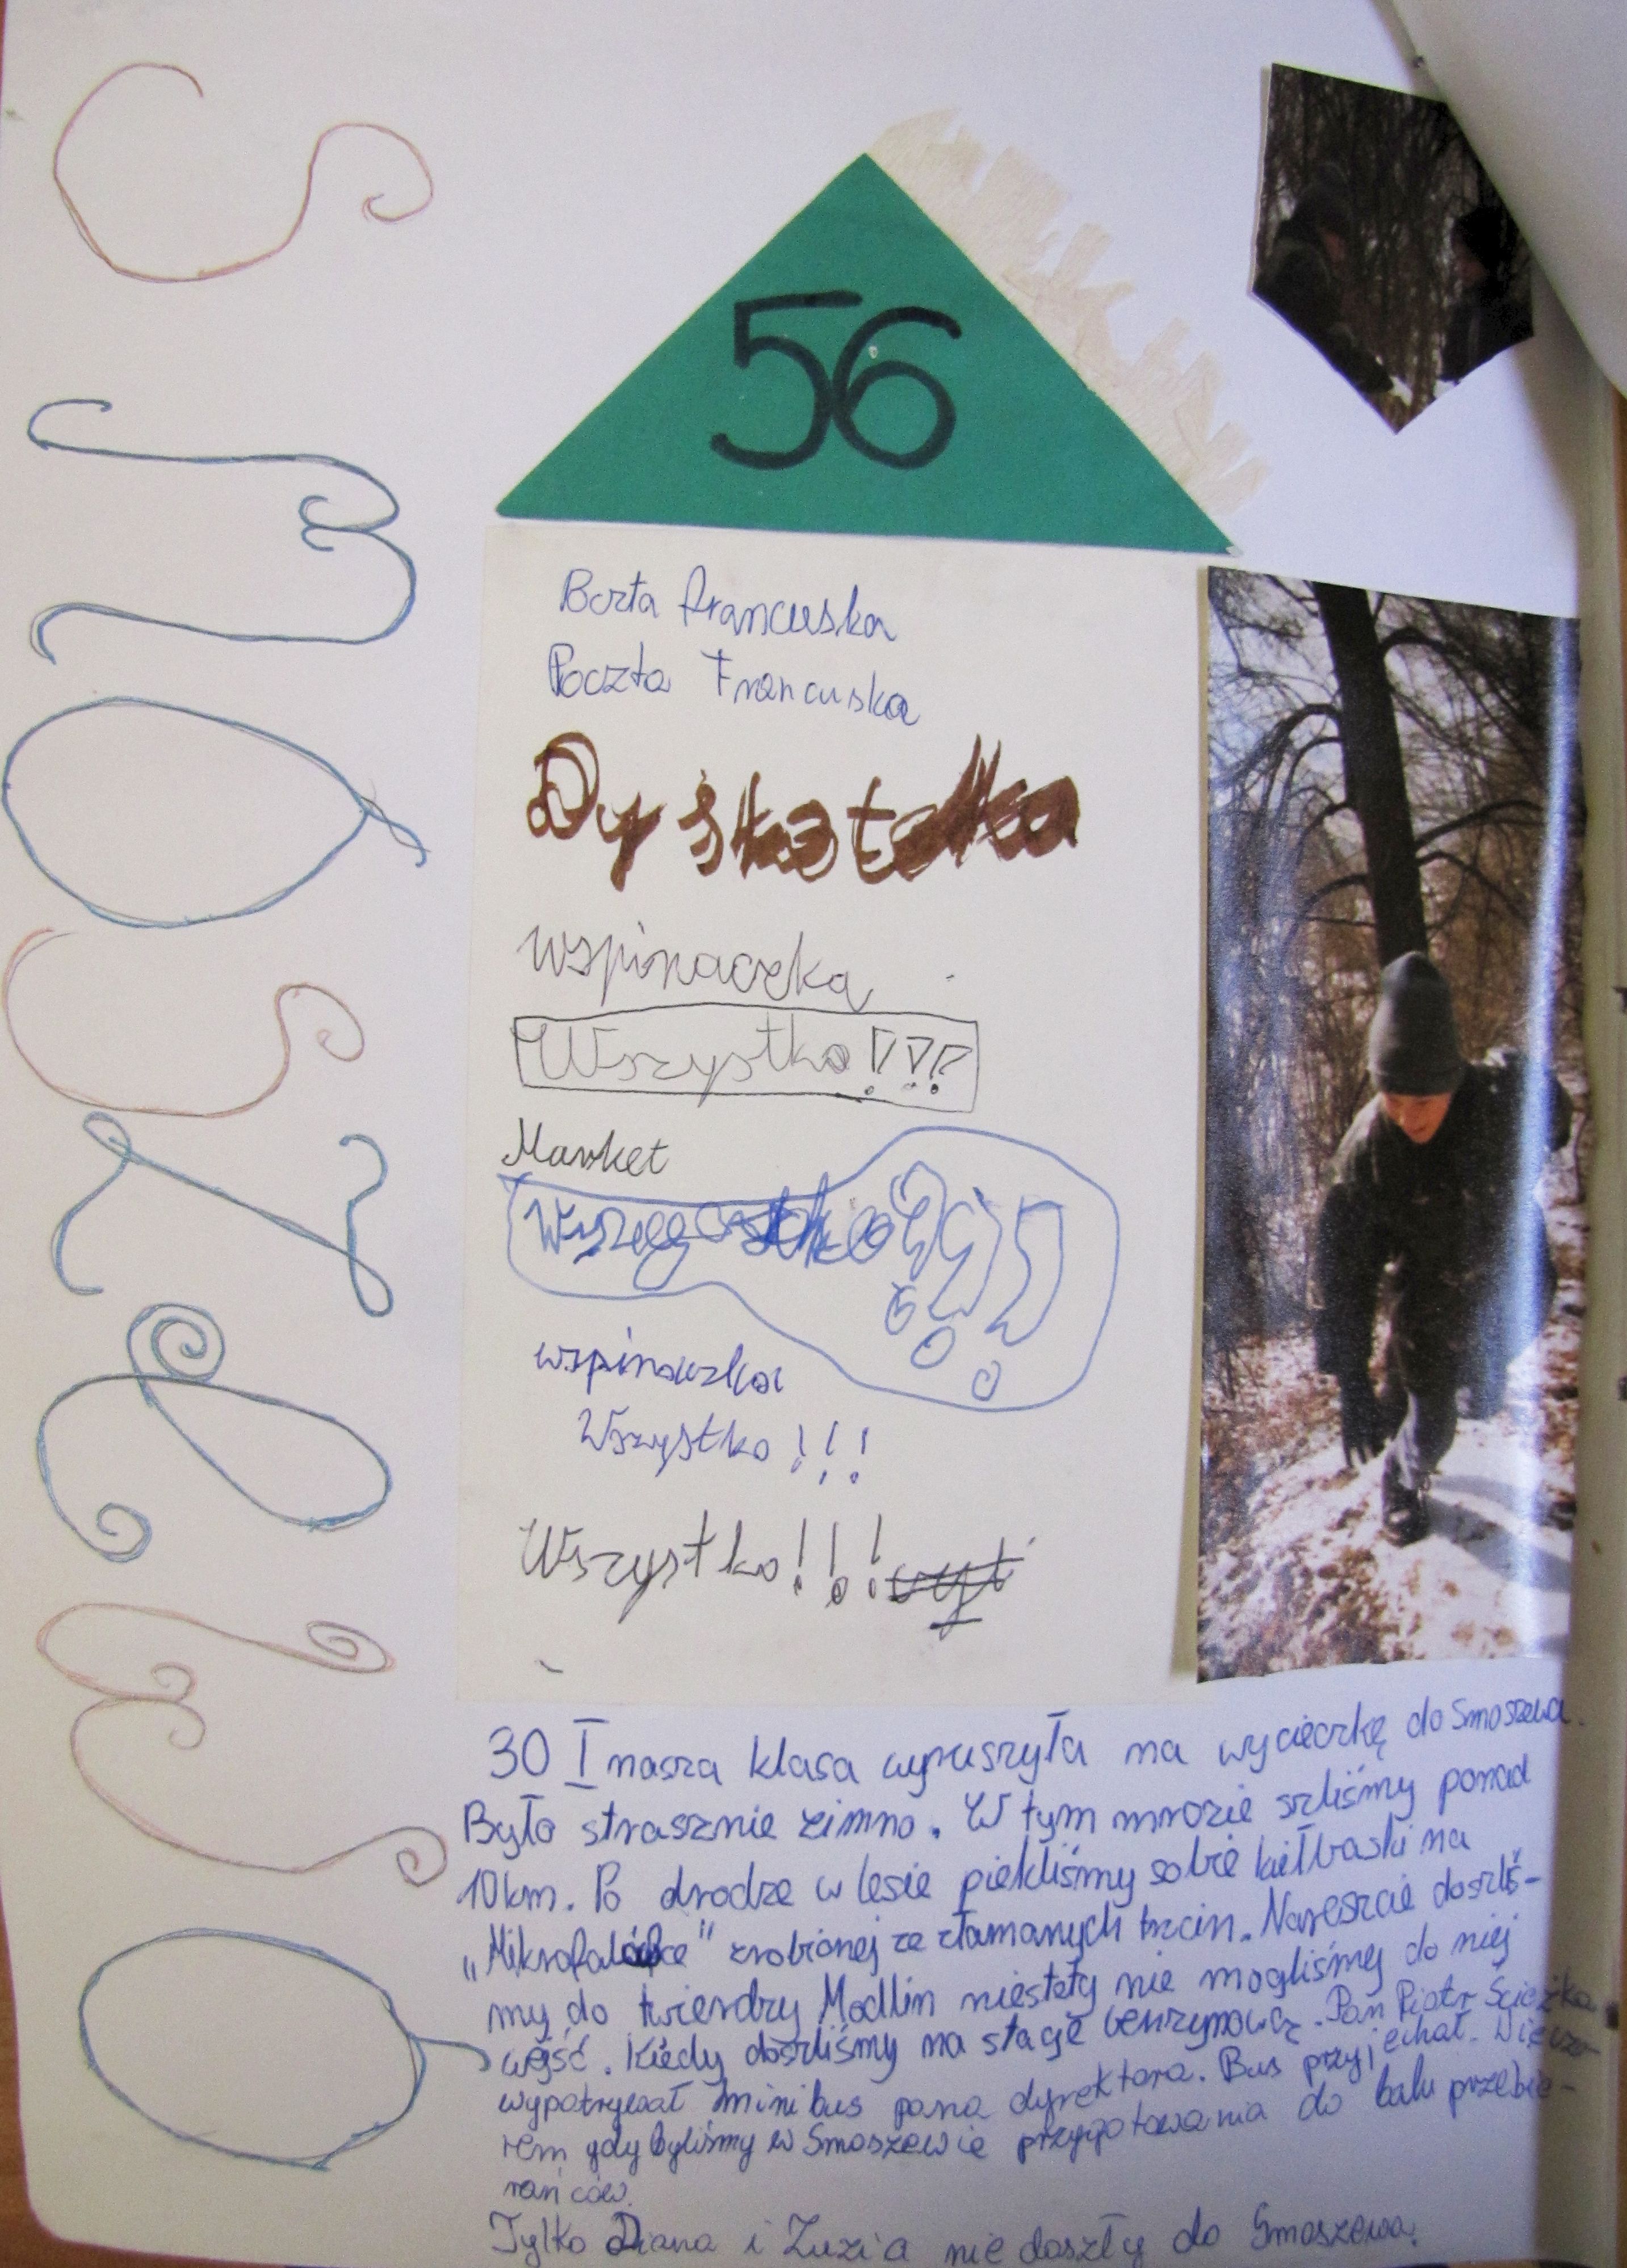 SMOSZEWO
56
Poczta Francuska
Wspinaczka
Wszystko!!!
Market
wspinaczka
Wszystko!!!
Wszystko!!!
30 I nasza klasa wyruszyła na wycieczkę do Smoszewa.
Było strasznie zimno. W tym mrozie szliśmy ponad
10km. Po drodze w lesie piekliśmy sobie kiełbaski na
" zrobionej ze złamanych trzcin. Nareszcie doszliś-
my do twierdzy Modlin niestety nie mogliśmy do niej
wejść. Kiedy doszliśmy na stację benzynową. Pan Piotr Ścieżka
wypatrywał minibus pana dyrektora. Bus przyjechał. Wieczo-
rem gdy byliśmy w Smoszewie przygotowania do balu przebie-
rańców.
Tylko Diana i Zuzia nie doszły do Smoszewa.